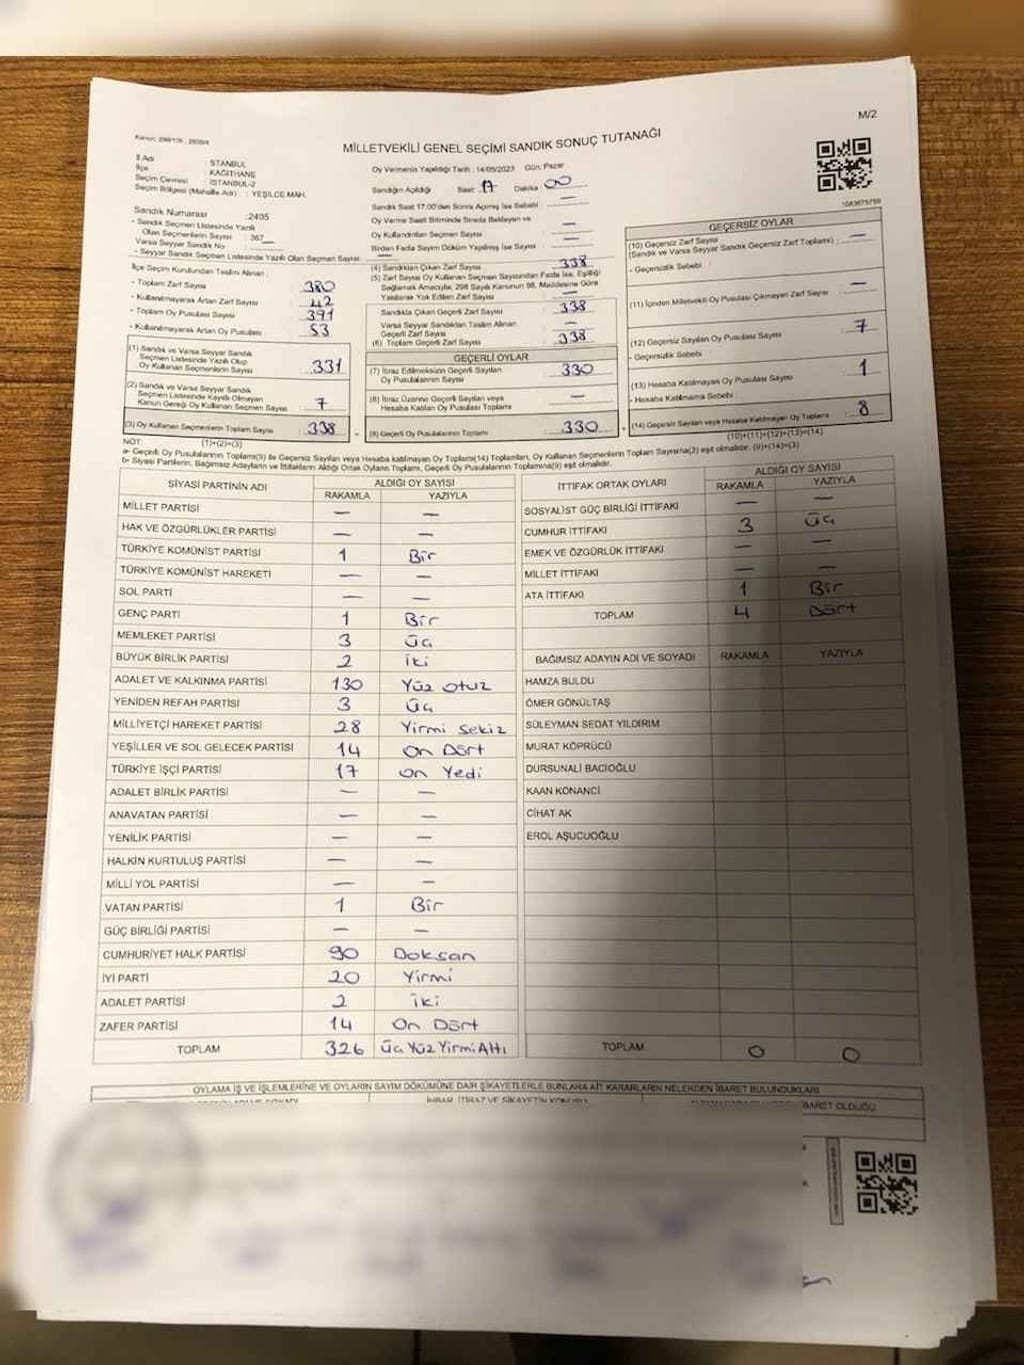 M/2
MİLLETVEKİLİ GENEL SEÇİMİ SANDIK SONUÇ TUTANAĞI
İl Adı : İSTANBUL
İlçe : KAĞITHANE
Seçim Çevresi : İSTANBUL-2
Seçim Bölgesi (Mahalle Adı) : YEŞİLCE MAH.
Oy Vermenin Yapıldığı Tarih : 14/05/2023 Gün: Pazar
Sandığın Açıldığı Saat 17 Dakika 00
Sandık Saat 17.00'den Sonra Açılmış İse Sebebi : —
Oy Verme Saati Bitiminde Sırada Bekleyen ve
Oy Kullandırılan Seçmen Sayısı —
Birden Fazla Sayım Döküm Yapılmış İse Sayısı —
Sandık Numarası : 2405
- Sandık Seçmen Listesinde Yazılı
Olan Seçmenlerin Sayısı : 367
Varsa Seyyar Sandık No
- Seyyar Sandık Seçmen Listesinde Yazılı Olan Seçmen Sayısı: —
İlçe Seçim Kurulundan Teslim Alınan :
- Toplam Zarf Sayısı 380
- Kullanılmayarak Artan Zarf Sayısı 42
- Toplam Oy Pusulası Sayısı 391
- Kullanılmayarak Artan Oy Pusulası 53
(1) Sandık ve Varsa Seyyar Sandık
Seçmen Listesinde Yazılı Olup
Oy Kullanan Seçmenlerin Sayısı 331
(2) Sandık ve Varsa Seyyar Sandık
Seçmen Listesinde Kayıtlı Olmayan
Kanun Gereği Oy Kullanan Seçmen Sayısı 7
(3) Oy Kullanan Seçmenlerin Toplam Sayısı 338
(1)+(2)=(3)
(4) Sandıktan Çıkan Zarf Sayısı 338
(5) Zarf Sayısı Oy Kullanan Seçmen Sayısından Fazla İse, Eşitliği
Sağlamak Amacıyla, 298 Sayılı Kanunun 98. Maddesine Göre
Yakılarak Yok Edilen Zarf Sayısı —
Sandıkta Çıkan Geçerli Zarf Sayısı 338
Varsa Seyyar Sandıktan Teslim Alınan
Geçerli Zarf Sayısı —
(6) Toplam Geçerli Zarf Sayısı 338
GEÇERLİ OYLAR
(7) İtiraz Edilmeksizin Geçerli Sayılan
Oy Pusulalarının Sayısı 330
(8) İtiraz Üzerine Geçerli Sayılan veya
Hesaba Katılan Oy Pusulası Toplamı —
(9) Geçerli Oy Pusulalarının Toplamı 330
GEÇERSİZ OYLAR
(10) Geçersiz Zarf Sayısı —
(Sandık ve Varsa Seyyar Sandık Geçersiz Zarf Toplamı)
- Geçersizlik Sebebi
(11) İçinden Milletvekili Oy Pusulası Çıkmayan Zarf Sayısı —
(12) Geçersiz Sayılan Oy Pusulası Sayısı 7
- Geçersizlik Sebebi
(13) Hesaba Katılmayan Oy Pusulası Sayısı 1
- Hesaba Katılmama Sebebi
(14) Geçersiz Sayılan veya Hesaba Katılmayan Oy Toplamı 8
(10)+(11)+(12)+(13)=(14)
NOT:
a- Geçerli Oy Pusulalarının Toplamı(9) ile Geçersiz Sayılan veya Hesaba katılmayan Oy Toplamı(14) Toplamları, Oy Kullanan Seçmenlerin Toplam Sayısına(3) eşit olmalıdır. (9)+(14)=(3)
b- Siyasi Partilerin, Bağımsız Adayların ve İttifakların Aldığı Ortak Oyların Toplamı, Geçerli Oy Pusulalarının Toplamına(9) eşit olmalıdır.
SİYASİ PARTİNİN ADI ALDIĞI OY SAYISI
RAKAMLA YAZIYLA
MİLLET PARTİSİ — —
HAK VE ÖZGÜRLÜKLER PARTİSİ — —
TÜRKİYE KOMÜNİST PARTİSİ 1 Bir
TÜRKİYE KOMÜNİST HAREKETİ — —
SOL PARTİ — —
GENÇ PARTİ 1 Bir
MEMLEKET PARTİSİ 3 Üç
BÜYÜK BİRLİK PARTİSİ 2 İki
ADALET VE KALKINMA PARTİSİ 130 Yüz otuz
YENİDEN REFAH PARTİSİ 3 Üç
MİLLİYETÇİ HAREKET PARTİSİ 28 Yirmi Sekiz
YEŞİLLER VE SOL GELECEK PARTİSİ 14 On Dört
TÜRKİYE İŞÇİ PARTİSİ 17 On Yedi
ADALET BİRLİK PARTİSİ — —
ANAVATAN PARTİSİ — —
YENİLİK PARTİSİ — —
HALKIN KURTULUŞ PARTİSİ — —
MİLLİ YOL PARTİSİ — —
VATAN PARTİSİ 1 Bir
GÜÇ BİRLİĞİ PARTİSİ — —
CUMHURİYET HALK PARTİSİ 90 Doksan
İYİ PARTİ 20 Yirmi
ADALET PARTİSİ 2 İki
ZAFER PARTİSİ 14 On Dört
TOPLAM 326 Üç Yüz Yirmi Altı
İTTİFAK ORTAK OYLARI ALDIĞI OY SAYISI
RAKAMLA YAZIYLA
SOSYALİST GÜÇ BİRLİĞİ İTTİFAKI — —
CUMHUR İTTİFAKI 3 Üç
EMEK VE ÖZGÜRLÜK İTTİFAKI — —
MİLLET İTTİFAKI — —
ATA İTTİFAKI 1 Bir
TOPLAM 4 Dört
BAĞIMSIZ ADAYIN ADI VE SOYADI RAKAMLA YAZIYLA
HAMZA BULDU
ÖMER GÖNÜLTAŞ
SÜLEYMAN SEDAT YILDIRIM
MURAT KÖPRÜCÜ
DURSUNALİ BACIOĞLU
KAAN KONANCİ
CİHAT AK
EROL AŞUCUOĞLU
TOPLAM 0 0
OYLAMA İŞ VE İŞLEMLERİNE VE OYLARIN SAYIM DÖKÜMÜNE DAİR ŞİKAYETLERLE BUNLARA AİT KARARLARIN NELERDEN İBARET BULUNDUKLARI
İHBAR, İTİRAZ VE ŞİKAYETİN KONUSU
İBARET OLDUĞU